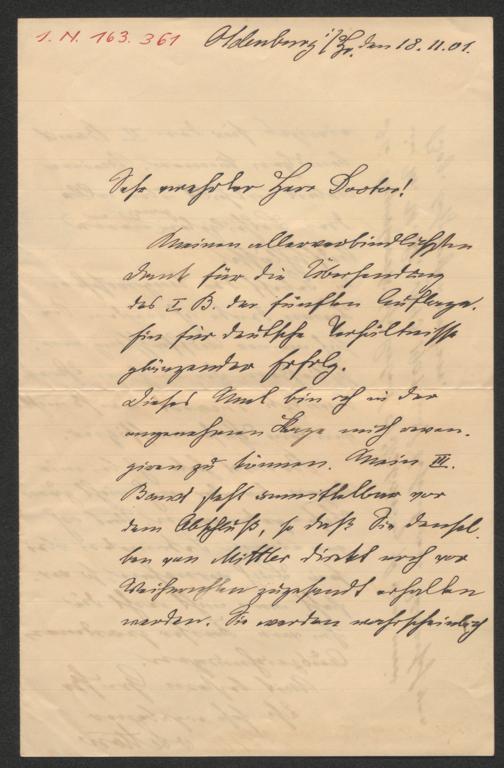 I. N. 163.361
Oldenburg i/Gr. den 18.11.01.
Sehr verehrter Herr Doctor!
Meinen allerverbindlichsten
Dank für die Übersendung
des I B. der fünften Auflage.
Ein für deutsche Verhältnisse
glänzender Erfolg.
Dieses Mal bin ich in der
angenehmen Lage mich revan-
giren zu können. Mein III.
Band steht unmittelbar vor
dem Abschluß, so daß Sie densel-
ben von Mittler direkt noch vor
Weihnachten zugesandt erhalten
werden. Sie werden wahrscheinlich